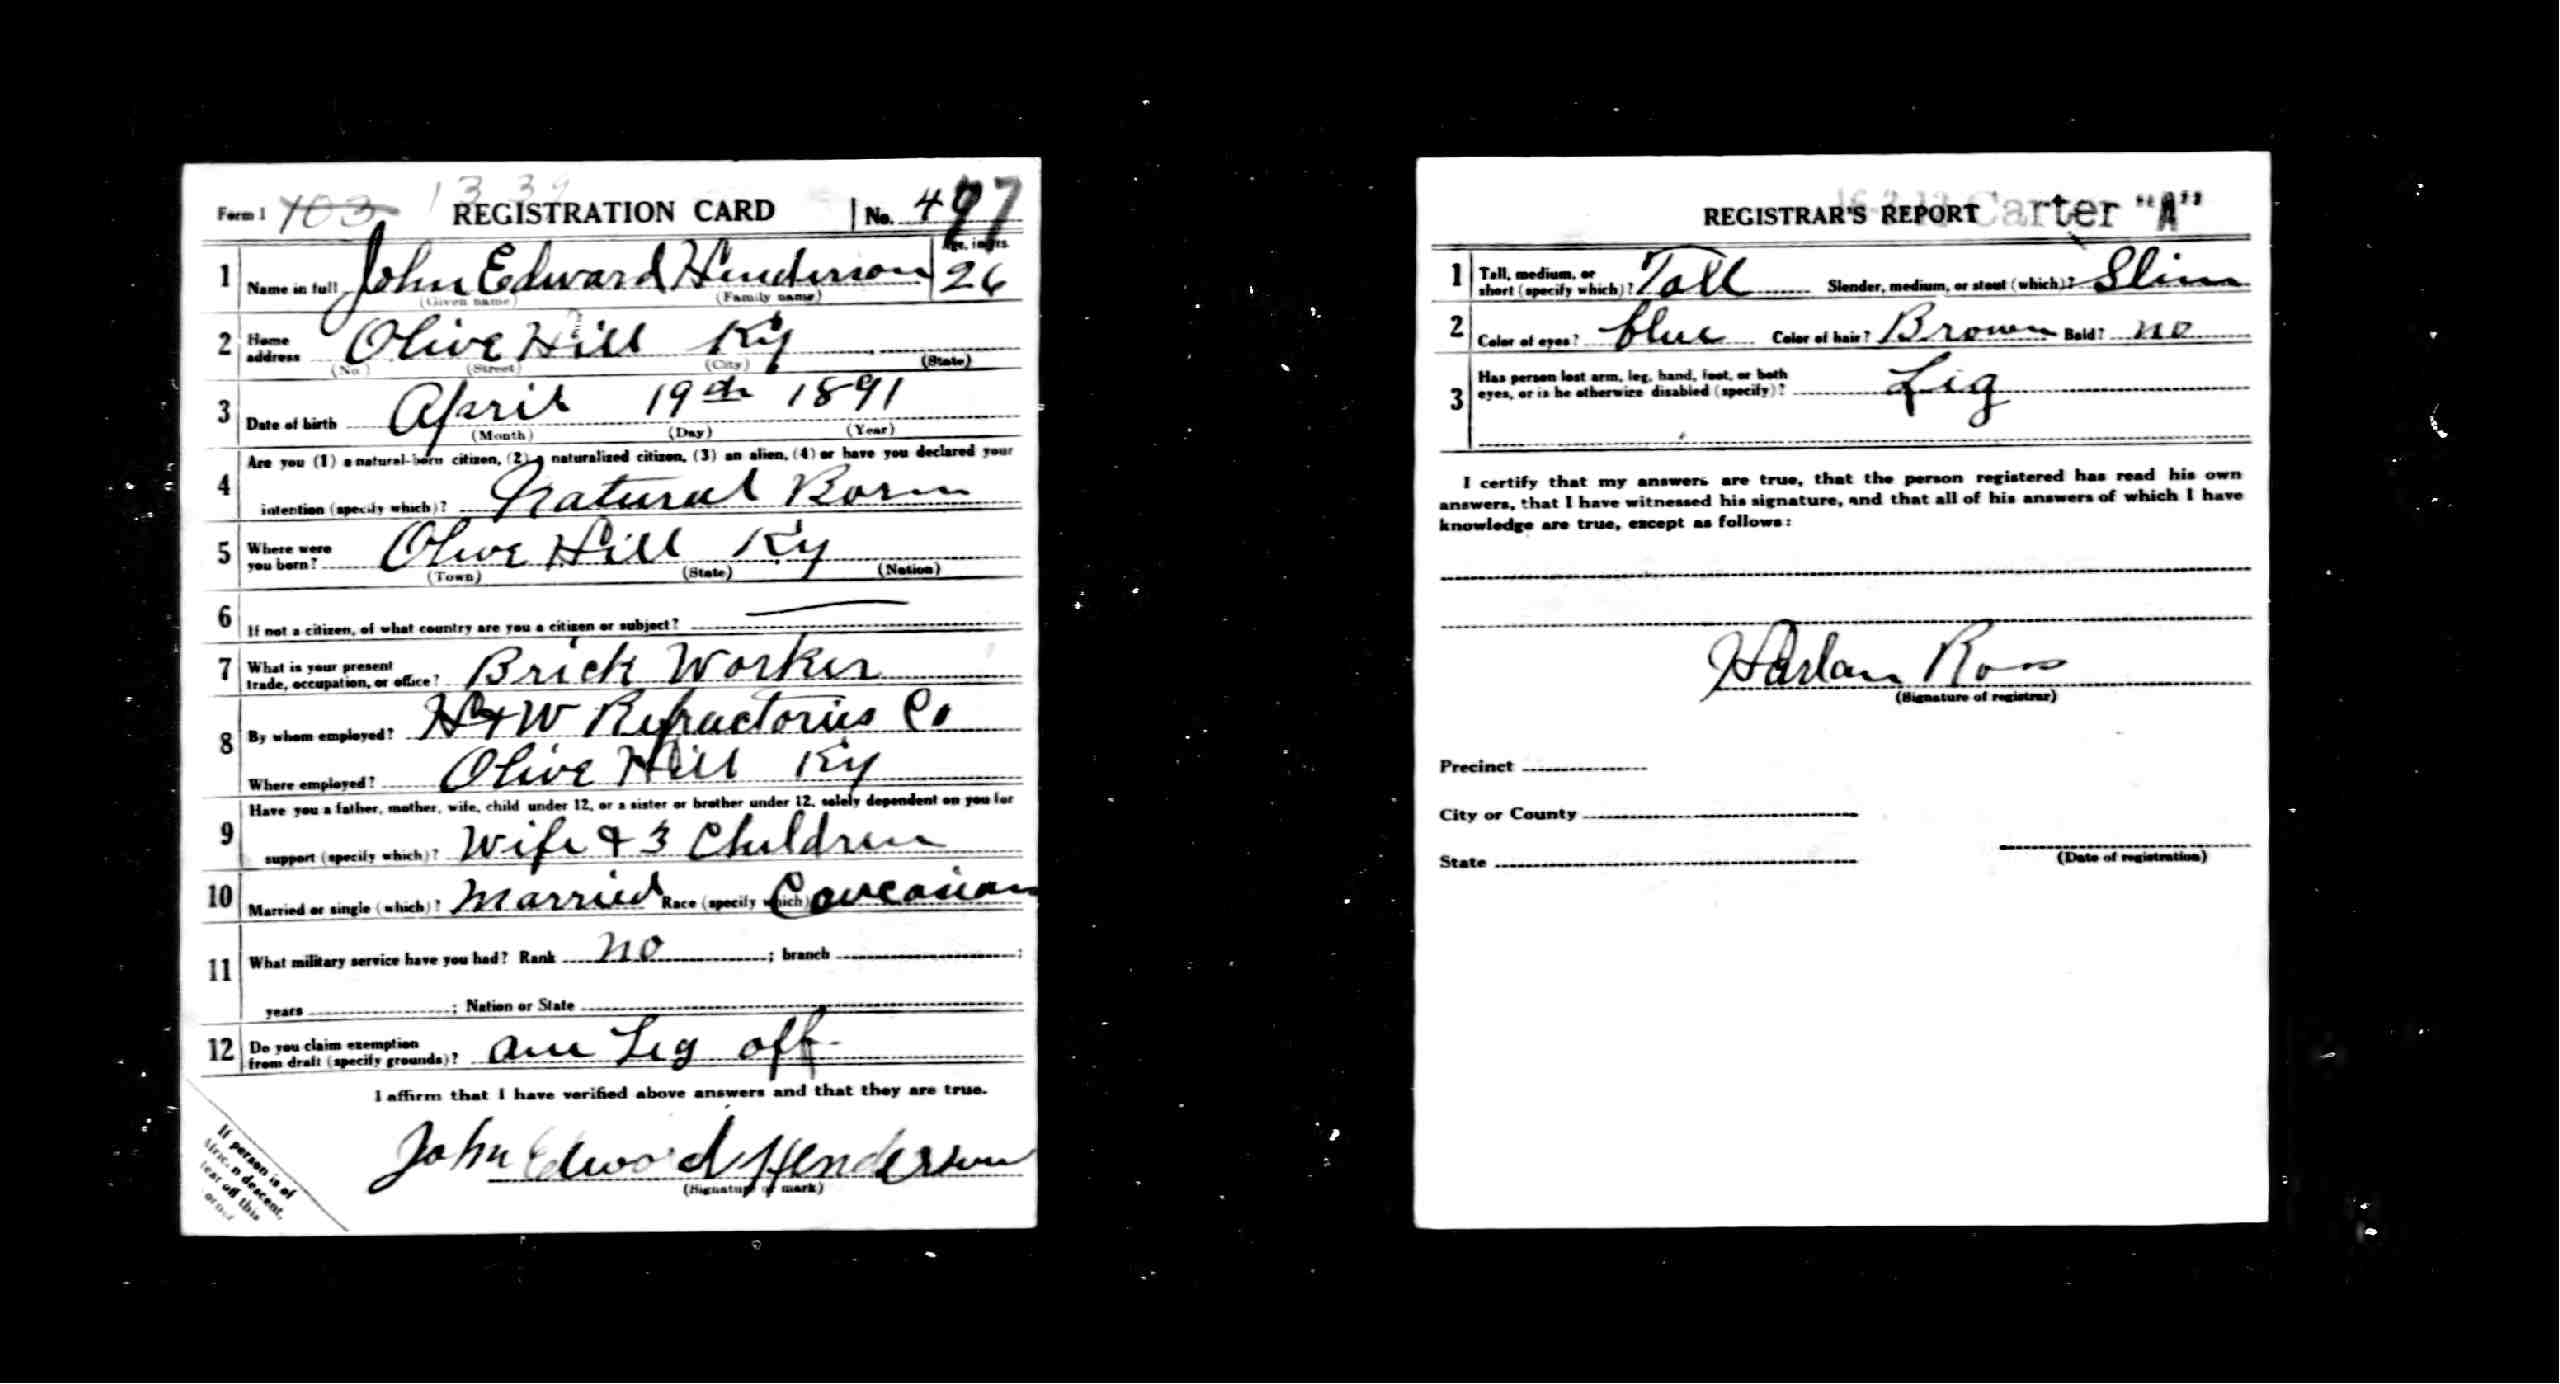 Form 1 103 REGISTRATION CARD No. 497
1 Name in full John Edward Henderson Age, in yrs. 26
(Given name) (Family name)
2 Home address Olive Hill Ky
(No.) (Street) (City) (State)
3 Date of birth April 19th 1891
(Month) (Day) (Year)
4 Are you (1) a natural-born citizen, (2) a naturalized citizen, (3) an alien, (4) or have you declared your
intention (specify which)? Natural Born
5 Where were you born? Olive Hill Ky
(Town) (State) (Nation)
6 If not a citizen, of what country are you a citizen or subject?
7 What is your present trade, occupation, or office? Brick Worker
8 By whom employed? H & W Refractories Co
Where employed? Olive Hill Ky
9 Have you a father, mother, wife, child under 12, or a sister or brother under 12, solely dependent on you for
support (specify which)? Wife & 3 Children
10 Married or single (which)? Married Race (specify which) Caucasian
11 What military service have you had? Rank no ; branch ;
years ; Nation or State
12 Do you claim exemption from draft (specify grounds)? Leg off
I affirm that I have verified above answers and that they are true.
John Edward Henderson
(Signature or mark)
If person is of
descent,
tear off this
corner
REGISTRAR'S REPORT Carter "A"
1 Tall, medium, or short (specify which)? Tall Slender, medium, or stout (which)? Slim
2 Color of eyes? blue Color of hair? Brown Bald? no
3 Has person lost arm, leg, hand, foot, or both
eyes, or is he otherwise disabled (specify)? Leg
I certify that my answers are true, that the person registered has read his own
answers, that I have witnessed his signature, and that all of his answers of which I have
knowledge are true, except as follows:
Harlan Ross
(Signature of registrar)
Precinct
City or County
State
(Date of registration)